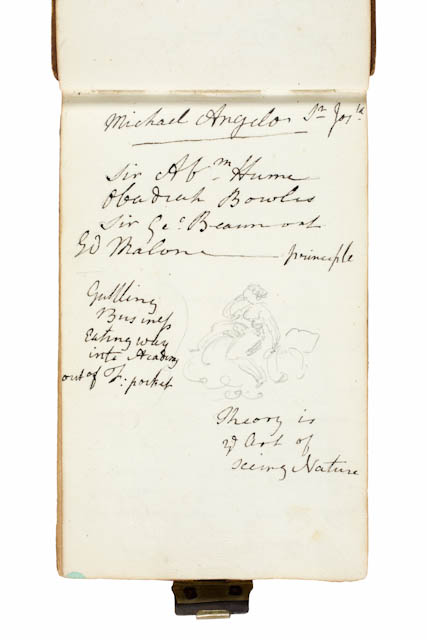 Michael Angelo Sr Josh
Sir Abm Hume
Obadiah Bowles
Sir Geo Beaumont
Ed Malone — principle
Guttling
Business
Eating way
into Academy
out of F: pocket
Theory is
ye Art of
seeing Nature